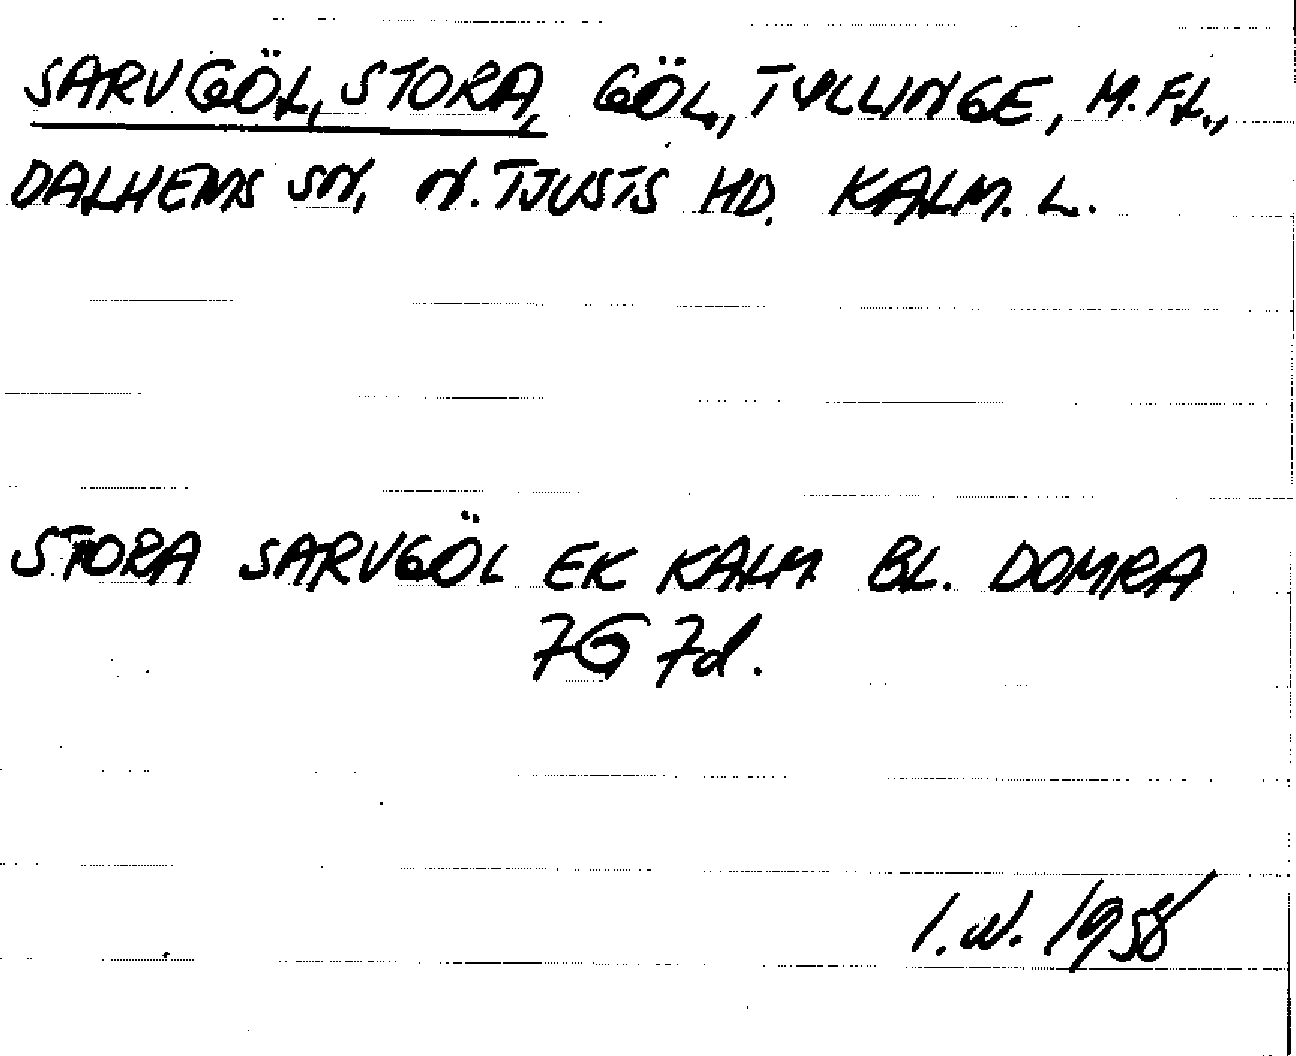 SARVGÖL, STORA, GÖL, TYLLINGE, M.FL.,
DALHEMS SN, N. TJUSTS HD. KALM. L.
STORA SARVGÖL EK KALM BL. DOMRA
7G 7d.
1958